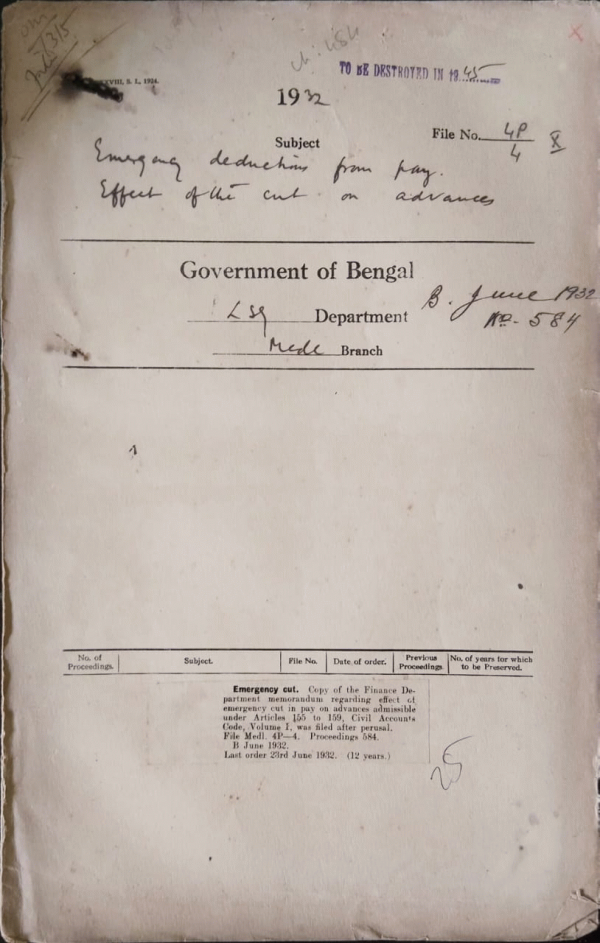 XXVIII, S. L., 1924.
TO BE DESTROYED IN 1945
1932
File No. 4P/4
Subject
Emergency deductions from pay.
Effect of the cut on advances
Government of Bengal
B. June 1932
LSG Department
No. 584
Medl Branch
No. of Proceedings. Subject. File No. Date of order. Previous Proceedings. No. of years for which to be Preserved.
Emergency cut. Copy of the Finance De-
partment memorandum regarding effect of
emergency cut in pay on advances admissible
under Articles 155 to 159, Civil Accounts
Code, Volume I, was filed after perusal.
File Medl. 4P—4. Proceedings 584.
B June 1932.
Last order 23rd June 1932. (12 years.)
25